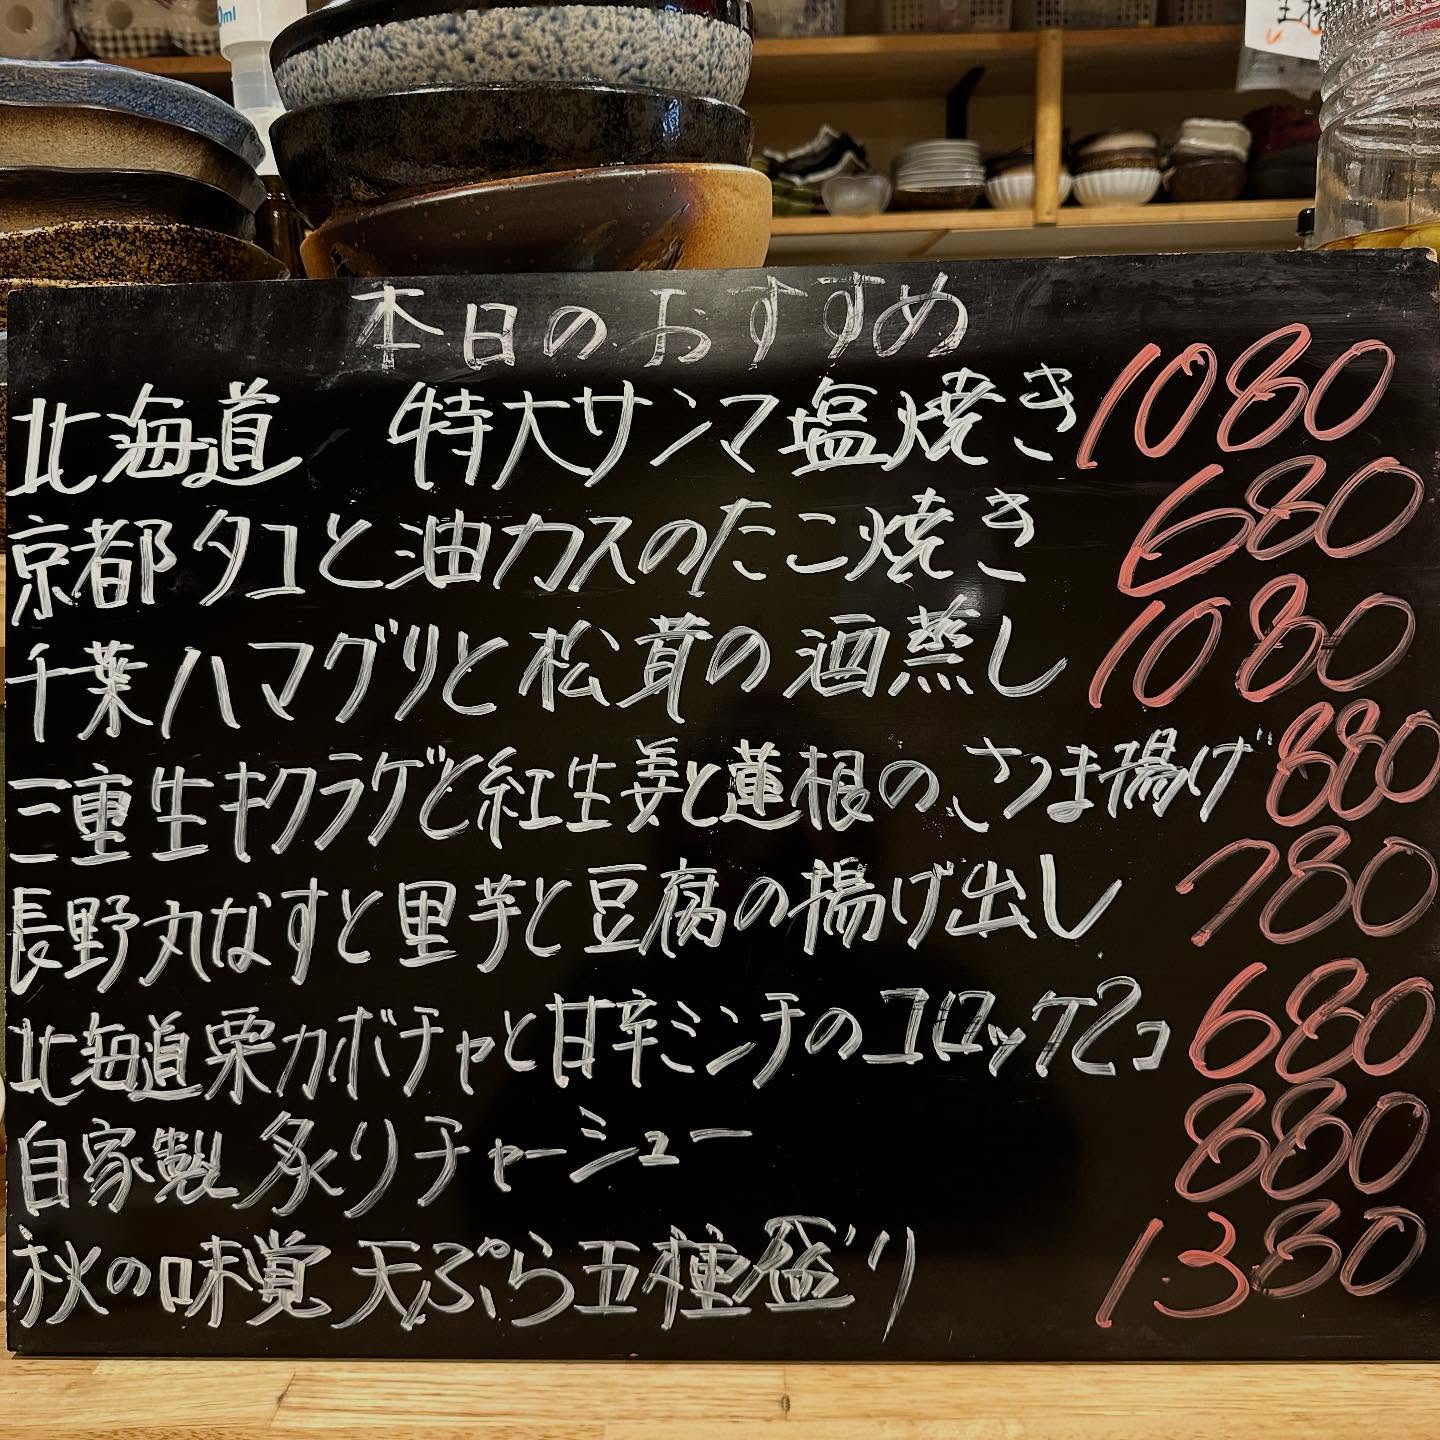 本日のおすすめ
北海道 特大サンマ塩焼き 1080
京都タコと油カスのたこ焼き 680
千葉ハマグリと松茸の酒蒸し 1080
三重生キクラゲと紅生姜と蓮根のさつま揚げ 880
長野丸なすと里芋と豆腐の揚げ出し 780
北海道栗カボチャと甘辛ミンチのコロッケ2コ 680
自家製 炙りチャーシュー 880
秋の味覚 天ぷら五種盛り 1380